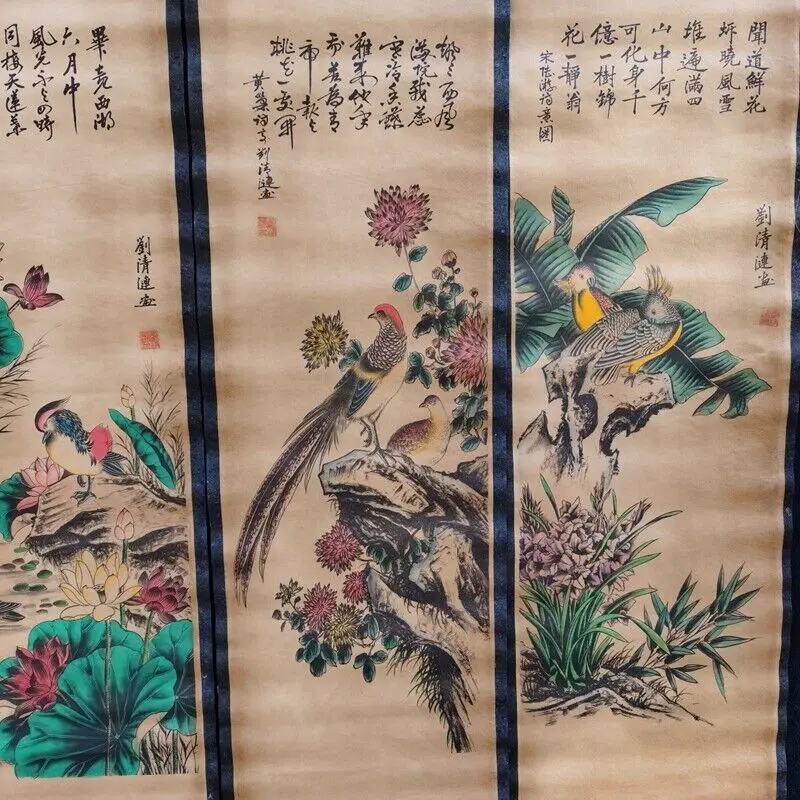 聞道鮮花
坼曉風雪
堆遍滿四
山中何方
可化身千
億一樹錦
花一靜翁
宋陸游詩意圖
劉清漣画
颯々西風
滿院栽蕊
寒冷香蝶
難來他年
我若為青
帝報与
桃花一處開
黃巢詩意劉清漣画
畢竟西湖
六月中
風光不与四時
同接天蓮葉
劉清漣画